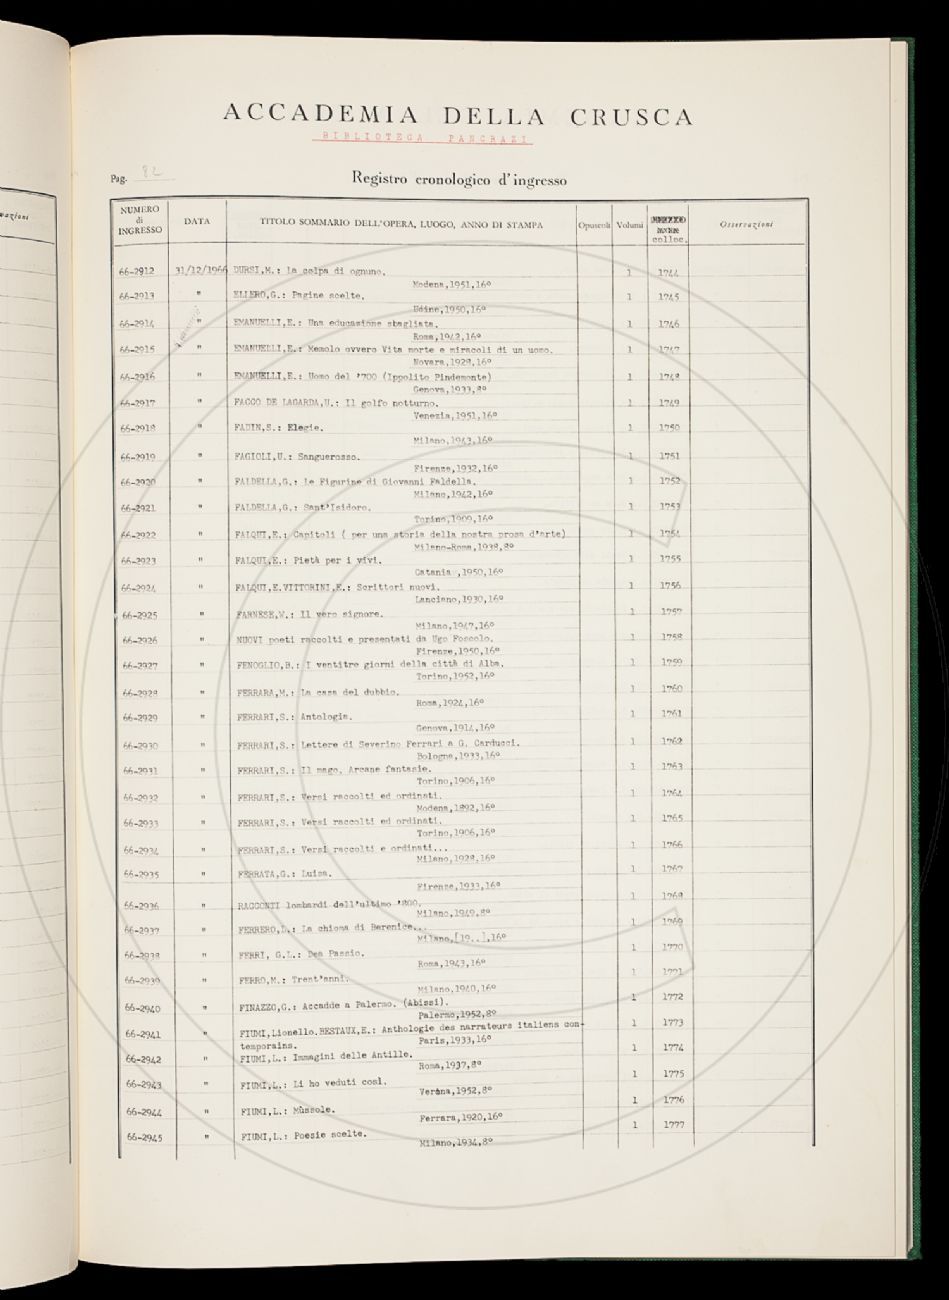 ACCADEMIA DELLA CRUSCA
BIBLIOTECA PANCRAZI
Pag. 82
Registro cronologico d'ingresso
NUMERO di INGRESSO DATA TITOLO SOMMARIO DELL'OPERA, LUOGO, ANNO DI STAMPA Opuscoli Volumi colloc. Osservazioni
66-2912 31/12/1966 DURSI,M.: La colpa di ognuno. 1 1744
Modena,1951,16º
66-2913 " ELLERO,G.: Pagine scelte. 1 1745
Udine,1950,16º
66-2914 " EMANUELLI,E.: Una educazione sbagliata. 1 1746
Roma,1942,16º
66-2915 " EMANUELLI,E.: Memolo ovvero Vita morte e miracoli di un uomo. 1 1747
Novara,1928,16º
66-2916 " EMANUELLI,E.: Uomo del '700 (Ippolito Pindemonte) 1 1748
Genova,1933,8º
66-2917 " FACCO DE LAGARDA,U.: Il golfo notturno. 1 1749
Venezia,1951,16º
66-2918 " FADIN,S.: Elegie. 1 1750
Milano,1943,16º
66-2919 " FAGIOLI,U.: Sanguerosso. 1 1751
Firenze,1932,16º
66-2920 " FALDELLA,G.: Le Figurine di Giovanni Faldella. 1 1752
Milano,1942,16º
66-2921 " FALDELLA,G.: Sant'Isidoro. 1 1753
Torino,1909,16º
66-2922 " FALQUI,E.: Capitoli ( per una storia della nostra prosa d'arte) 1 1754
Milano-Roma,1938,8º
66-2923 " FALQUI,E.: Pietà per i vivi. 1 1755
Catania ,1950,16º
66-2924 " FALQUI,E.VITTORINI,E.: Scrittori nuovi. 1 1756
Lanciano,1930,16º
66-2925 " FARNESE,W.: Il vero signore. 1 1757
Milano,1947,16º
66-2926 " NUOVI poeti raccolti e presentati da Ugo Foscolo. 1 1758
Firenze,1950,16º
66-2927 " FENOGLIO,B.: I ventitre giorni della città di Alba. 1 1759
Torino,1952,16º
66-2928 " FERRARA,M.: La casa del dubbio. 1 1760
Roma,1924,16º
66-2929 " FERRARI,S.: Antologia. 1 1761
Genova,1914,16º
66-2930 " FERRARI,S.: Lettere di Severino Ferrari a G. Carducci. 1 1762
Bologna,1933,16º
66-2931 " FERRARI,S.: Il mago, Arcane fantasie. 1 1763
Torino,1906,16º
66-2932 " FERRARI,S.: Versi raccolti ed ordinati. 1 1764
Modena,1892,16º
66-2933 " FERRARI,S.: Versi raccolti ed ordinati. 1 1765
Torino,1906,16º
66-2934 " FERRARI,S.: Versi raccolti e ordinati... 1 1766
Milano,1928,16º
66-2935 " FERRATA,G.: Luisa. 1 1767
Firenze,1933,16º
66-2936 " RACCONTI lombardi dell'ultimo '800. 1 1768
Milano,1949,8º
66-2937 " FERRERO,L.: La chioma di Berenice... 1 1769
Milano,[19..],16º
66-2938 " FERRI, G.L.: Dea Passio. 1 1770
Roma,1943,16º
66-2939 " FERRO,M.: Trent'anni. 1 1771
Milano,1940,16º
66-2940 " FINAZZO,G.: Accadde a Palermo. (Abissi). 1 1772
Palermo,1952,8º
66-2941 " FIUMI,Lionello.BESTAUX,E.: Anthologie des narrateurs italiens con- 1 1773
temporains. Paris,1933,16º
66-2942 " FIUMI,L.: Immagini delle Antille. 1 1774
Roma,1937,8º
66-2943 " FIUMI,L.: Li ho veduti così. 1 1775
Veràna,1952,8º
66-2944 " FIUMI,L.: Mùssole. 1 1776
Ferrara,1920,16º
66-2945 " FIUMI,L.: Poesie scelte. 1 1777
Milano,1934,8º